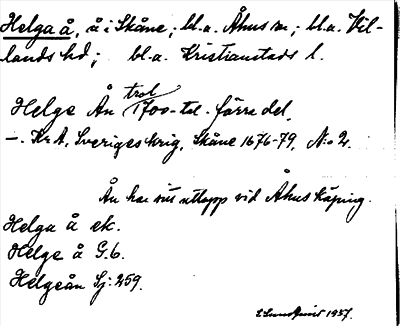 Helga å, å i Skåne; bl.a. Åhus sn; bl.a. Vil-
lands hd; bl.a. Kristianstads l.
trol
Helge Ån 1700-tal. förra del,
–. KrA, Sveriges krig, Skåne 1676-79, N:o 2.
Ån har sitt utlopp vid Åhus köping.
Helga å ek.
Helge å G.b.
Helgeån Sj: 259.
1937.